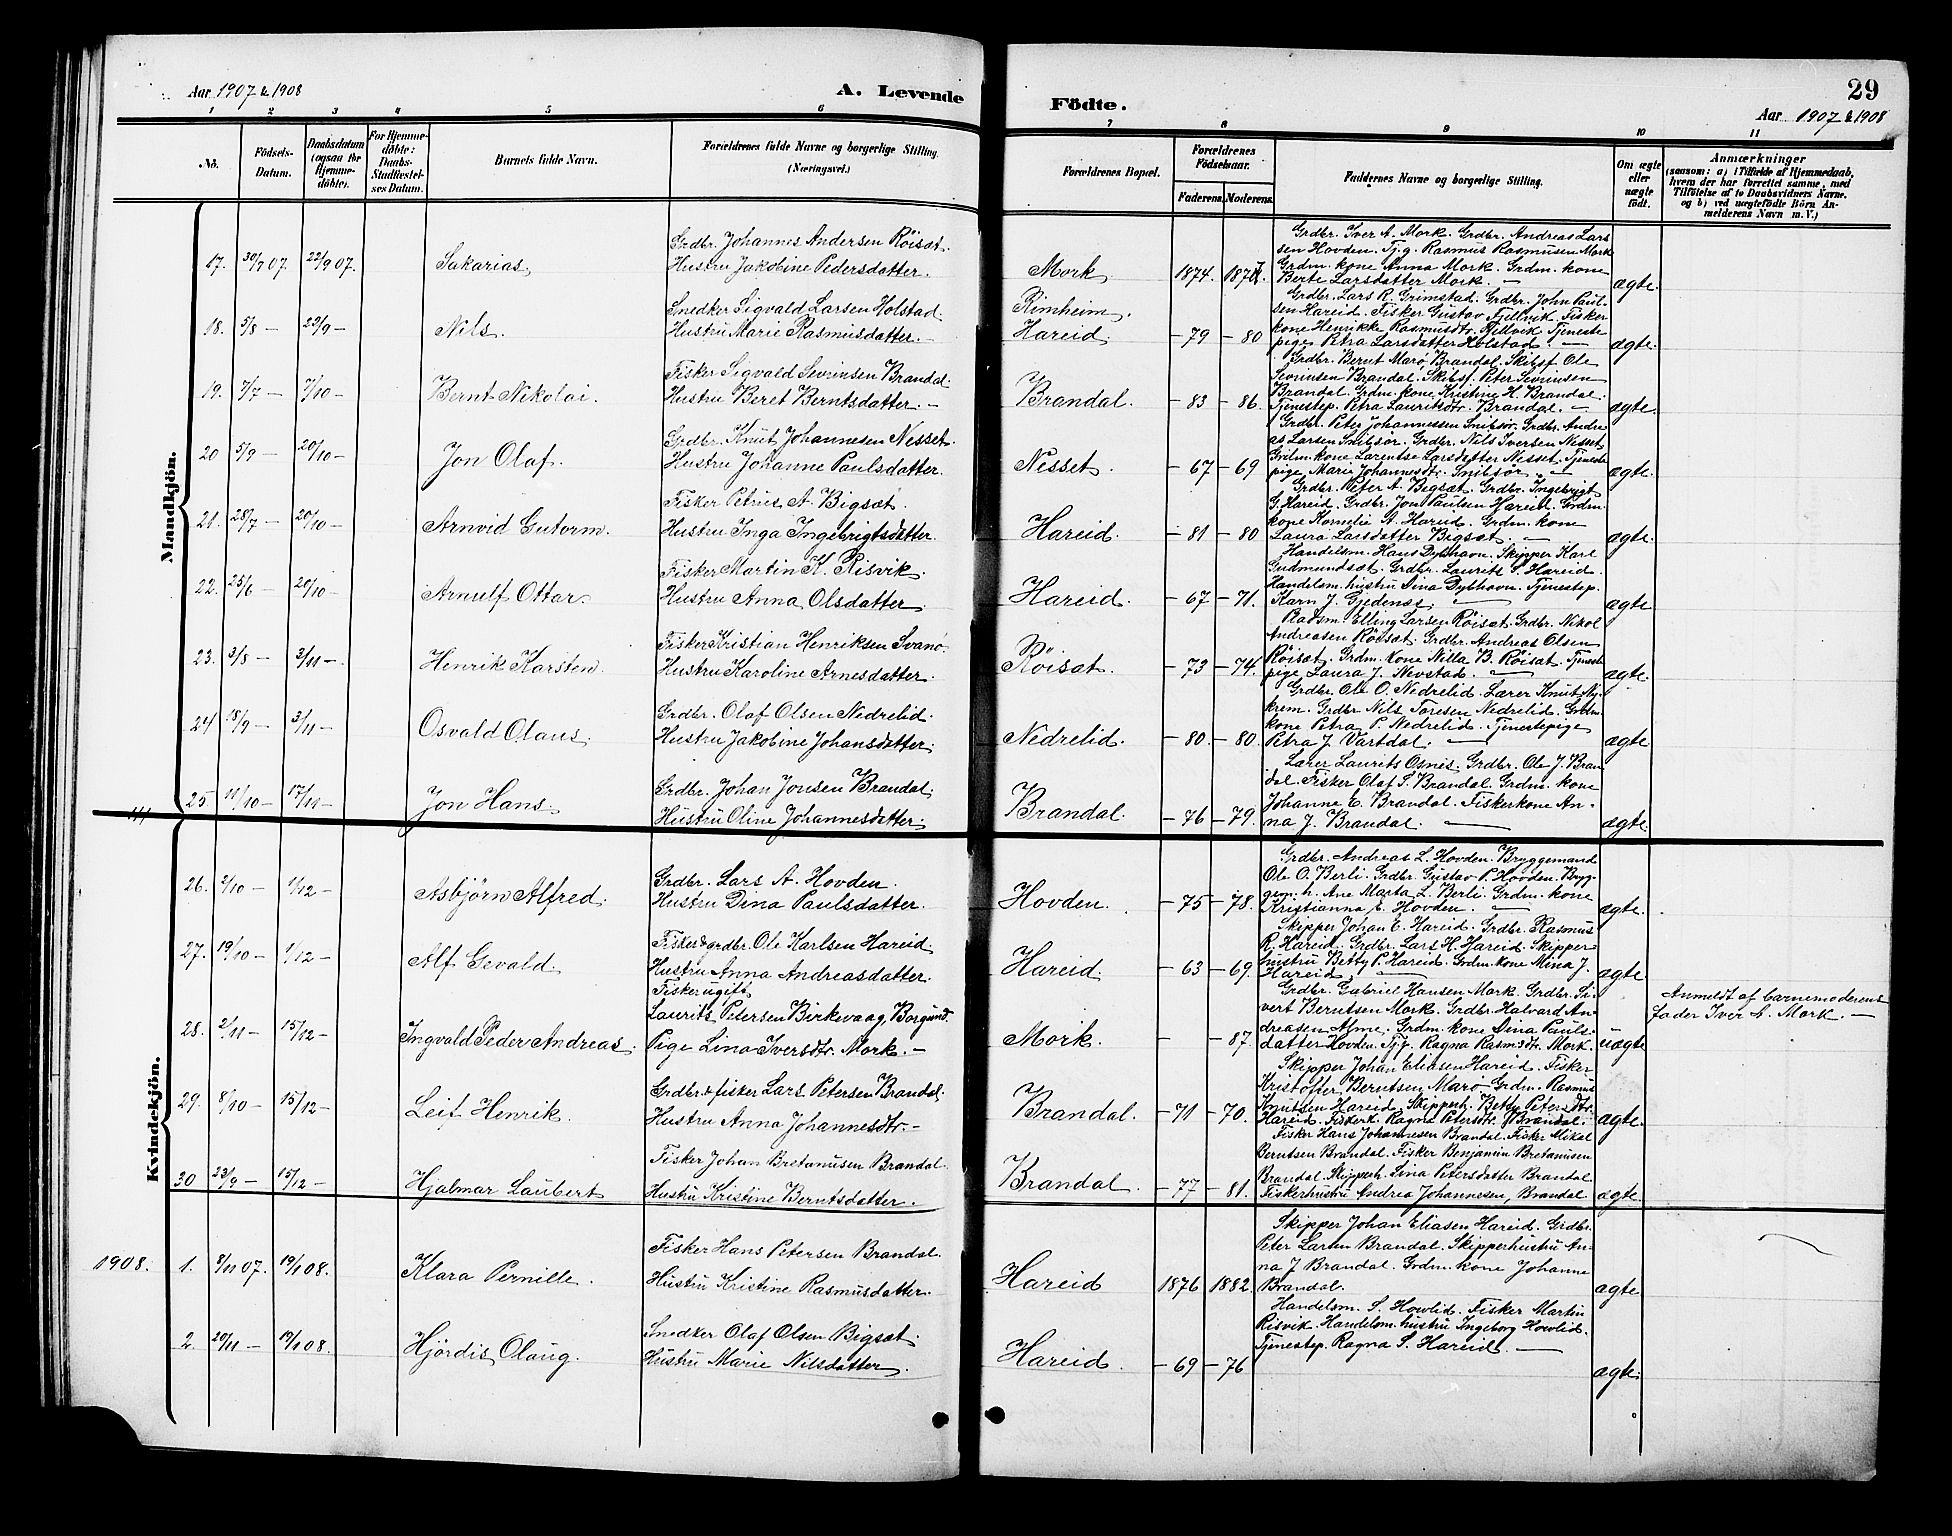 Aar 1907 & 1908
A. Levende
Födte.
29
Aar 1907 & 1908
1 2 3 4 5 6 7 8 9 10 11
No.
Födsels-Datum.
Daabsdatum (ogsaa for Hjemme-döbte).
For Hjemme-döbte: Daabs-Stadfæstel-ses Datum.
Barnets fulde Navn.
Forældrenes fulde Navne og borgerlige Stilling.
(Næringsvei.)
Forældrenes Bopæl.
Forældrenes Födselsaar.
Faderens. Moderens.
Faddernes Navne og borgerlige Stilling.
Om ægte eller uægte født.
Anmærkninger
(saasom: a) i Tilfælde af Hjemmedaab,
hvem der har forrettet samme, med
Tilföielse af to Daabsvidners Navne.
og b) ved uægtefödte Börn An-
melderens Navn m. V.)
Mandkjön.
17. 30/7 07. 22/9 07. Sakarias,
Grdbr. Johannes Andersen Röisæt.
Hustru Jakobine Pedersdatter.
Mork 1874. 1877.
Grdbr. Iver A. Mork. Grdbr. Andreas Lars
sen Hovden. Tj.g. Rasmus Rasmusen Mork
Grdm. kone Anna Mork. Grdm. kone
Berte Larsdatter Mork. —
ægte.
18. 5/8 — 29/9 — Nils.
Snedker Sigvald Larsen Holstad.
Hustru Marie Rasmusdatter. —
Rimheim.
Hareid. — 79 — 80
Grdbr. Lars R. Grimstad. Grdbr. John Paul-
sen Hareid. Fisker Gustav Fjellvik. Fisker
kone Henrikke Rasmusdtr. Fjellvik Tjeneste
pige Petra Larsdatter Holstad —
ægte.
19. 7/7 — 7/10 — Bernt Nikolai.
Fisker Sigvald Sevrinsen Brandal.
Hustru Beret Berntsdatter. —
Brandal. — 83 — 86.
Grdbr. Bernt Marø, Brandal. Skibsf. Ole
Sevrinsen Brandal. Skibsf. Peter Sevrinsen
Brandal. Grdm. kone Kristine H. Brandal.
Tjenestep. Petra Lauritsdtr. Brandal. —
ægte.
20 5/9 — 20/10 — Jon Olaf.
Grdbr. Knut Johannesen Nesset.
Hustru Johanne Paulsdatter.
Nesset. — 67 — 69
Grdbr. Peter Johannessen Snibsör. Grdbr. Andre
as Larsen Snibsör. Grdbr. Nils Iversen Nesset
Grdm. kone Larentse Larsdatter Nesset. Tjeneste
pige Marie Johannesdtr. Snibsör. —
ægte
21. 28/7 — 20/10 — Arnvid Gutorm.
Fisker Petrus A. Bigsæt.
Hustru Inga Ingebrigtsdatter.
Hareid. — 81 — 80
Grdbr. Peter A. Bigsæt. Grdbr. Ingebrigt
G. Hareid. Grdbr. Jon Paulsen Hareid. Grdm.
kone Kornelie A. Hareid. Grdm. kone
Laura Larsdatter Bigsæt. —
ægte.
22. 25/6 — 20/10 — Arnulf Ottar.
Fisker Martin K. Risvik.
Hustru Anna Olsdatter.
Hareid. — 67 — 71.
Handelsm. Hans Dybhavn. Skipper Karl
Gudmundsæt. Grdbr. Laurits S. Hareid.
Handelsm. hustru Sina Dybhavn. Tjenestep.
Karn J. Gjedenes. —
ægte
23. 3/8 — 3/11 — Henrik Karsten.
Fisker Kristian Henriksen Svanø.
Hustru Karoline Arnesdatter.
Röisæt. — 73 — 74.
Baadsm. Elling Larsen Röisæt. Grdbr. Nikol
Andreasen Röisæt. Grdbr. Andreas Olsen
Röisæt. Grdm. kone Nilla B. Röisæt. Tjeneste
pige Laura J. Nevstad. —
ægte.
24 18/9 — 3/11 — Osvald Olaus.
Grdbr. Olaf Olsen Nedrelid.
Hustru Jakobine Johansdatter.
Nedrelid. — 80. — 80.
Grdbr. Ole O. Nedrelid. Lærer Knut My-
krem. Grdbr Nils Taresen Nedrelid. Grdm.
kone Petra P. Nedrelid. Tjenestepige
Petra J. Vartdal. —
ægte.
25 11/10 — 17/11 — Jon Hans.
Grdbr. Johan Jonsen Brandal.
Hustru Oline Johannesdatter.
Brandal. — 76 — 79.
Lærer Laurits Osnes. Grdbr. Ole J. Bran-
dal. Fisker Olaf S. Brandal. Grdm. kone
Johanne E. Brandal. Fiskerkone An-
na J. Brandal. —
ægte.
Kvindekjön.
26. 2/10 — 1/12 — Asbjörn Alfred.
Grdbr. Lars A. Hovden.
Hustru Dina Paulsdatter.
Hovden. — 75 — 78.
Grdbr. Andreas L. Hovden. Bryggemand
Ole O. Berli. Grdbr. Gustav P. Hovden. Bryg-
gem. h. Ane Marta L. Berli. Grdm. kone
Kristianna E. Hovden. —
ægte.
27. 19/10 — 1/12 — Alf Gevald.
Fisker & grdbr. Ole Karlsen Hareid.
Hustru Anna Andreasdatter.
Hareid. — 63 — 69.
Skipper Johan E. Hareid. Grdbr. Rasmus
R. Hareid. Grdbr. Lars H. Hareid. Skipper-
hustru Betty P. Hareid. Grdm. kone Mina J.
Hareid. —
ægte.
28. 2/11 — 15/12 — Ingvald Peder Andreas.
Fisker ugift
Laurits Petersen Birkevaag, Borgund.
Pige Lina Iversdtr. Mork. —
Mork. — — 87.
Grdbr. Gabriel Hansen Mork. Grdbr. Si-
vert Berntsen Mork. Grdbr. Halvard An-
dreasen Alme. Grdm. kone Sina Pauls-
datter Hovden. Tjg. Ragna Rasmusdtr. Mork.
uægte
Anmeldt af barnemoderens
fader Iver L. Mork. —
29. 8/10 — 15/12 — Leif Henrik.
Grdbr. & fisker Lars Petersen Brandal.
Hustru Anna Johannesdtr. —
Brandal. — 71 — 70.
Skipper Johan Eliasen Hareid. Fisker
Kristoffer Berntsen Marø. Grdm. Rasmus
Knutsen Hareid. Skipperh. Betty Petersdtr.
Hareid. Fiskerk. Ragna Petersdtr. Brandal.
ægte.
30 23/9 — 15/12 — Hjalmar Laubert
Fisker Johan Bretanusen Brandal.
Hustru Kristine Berntsdatter.
Brandal. — 77 — 81.
Fisker Hans Johannesen Brandal. Fisker Mikal
Berntsen Brandal. Fisker Benjamin Bretanusen
Brandal. Skipperh. Sina Petersdatter Brandal
Fiskerhustru Andrea Johannesen, Brandal
ægte.
1908. 1. 8/11 07. 19/1 08. Klara Pernille.
Fisker Hans Petersen Brandal.
Hustru Kristine Rasmusdatter.
Hareid 1876 1882.
Skipper Johan Eliasen Hareid. Grdbr.
Peter Larsen Brandal. Skipperhustru An-
na J Brandal. Grdm. kone Johanne
Brandal.
ægte
2. 20/11 — 19/1 08. Hjördis Olaug.
Snedker Olaf Olsen Bigsæt.
Hustru Marie Nilsdatter.
Hareid. — 69 — 76
Handelsm. S. Howlid. Fisker Martin
Risvik. Handelsm. hustru Ingeborg Howlid.
Tjenestep. Ragna S. Hareid. —
ægte.